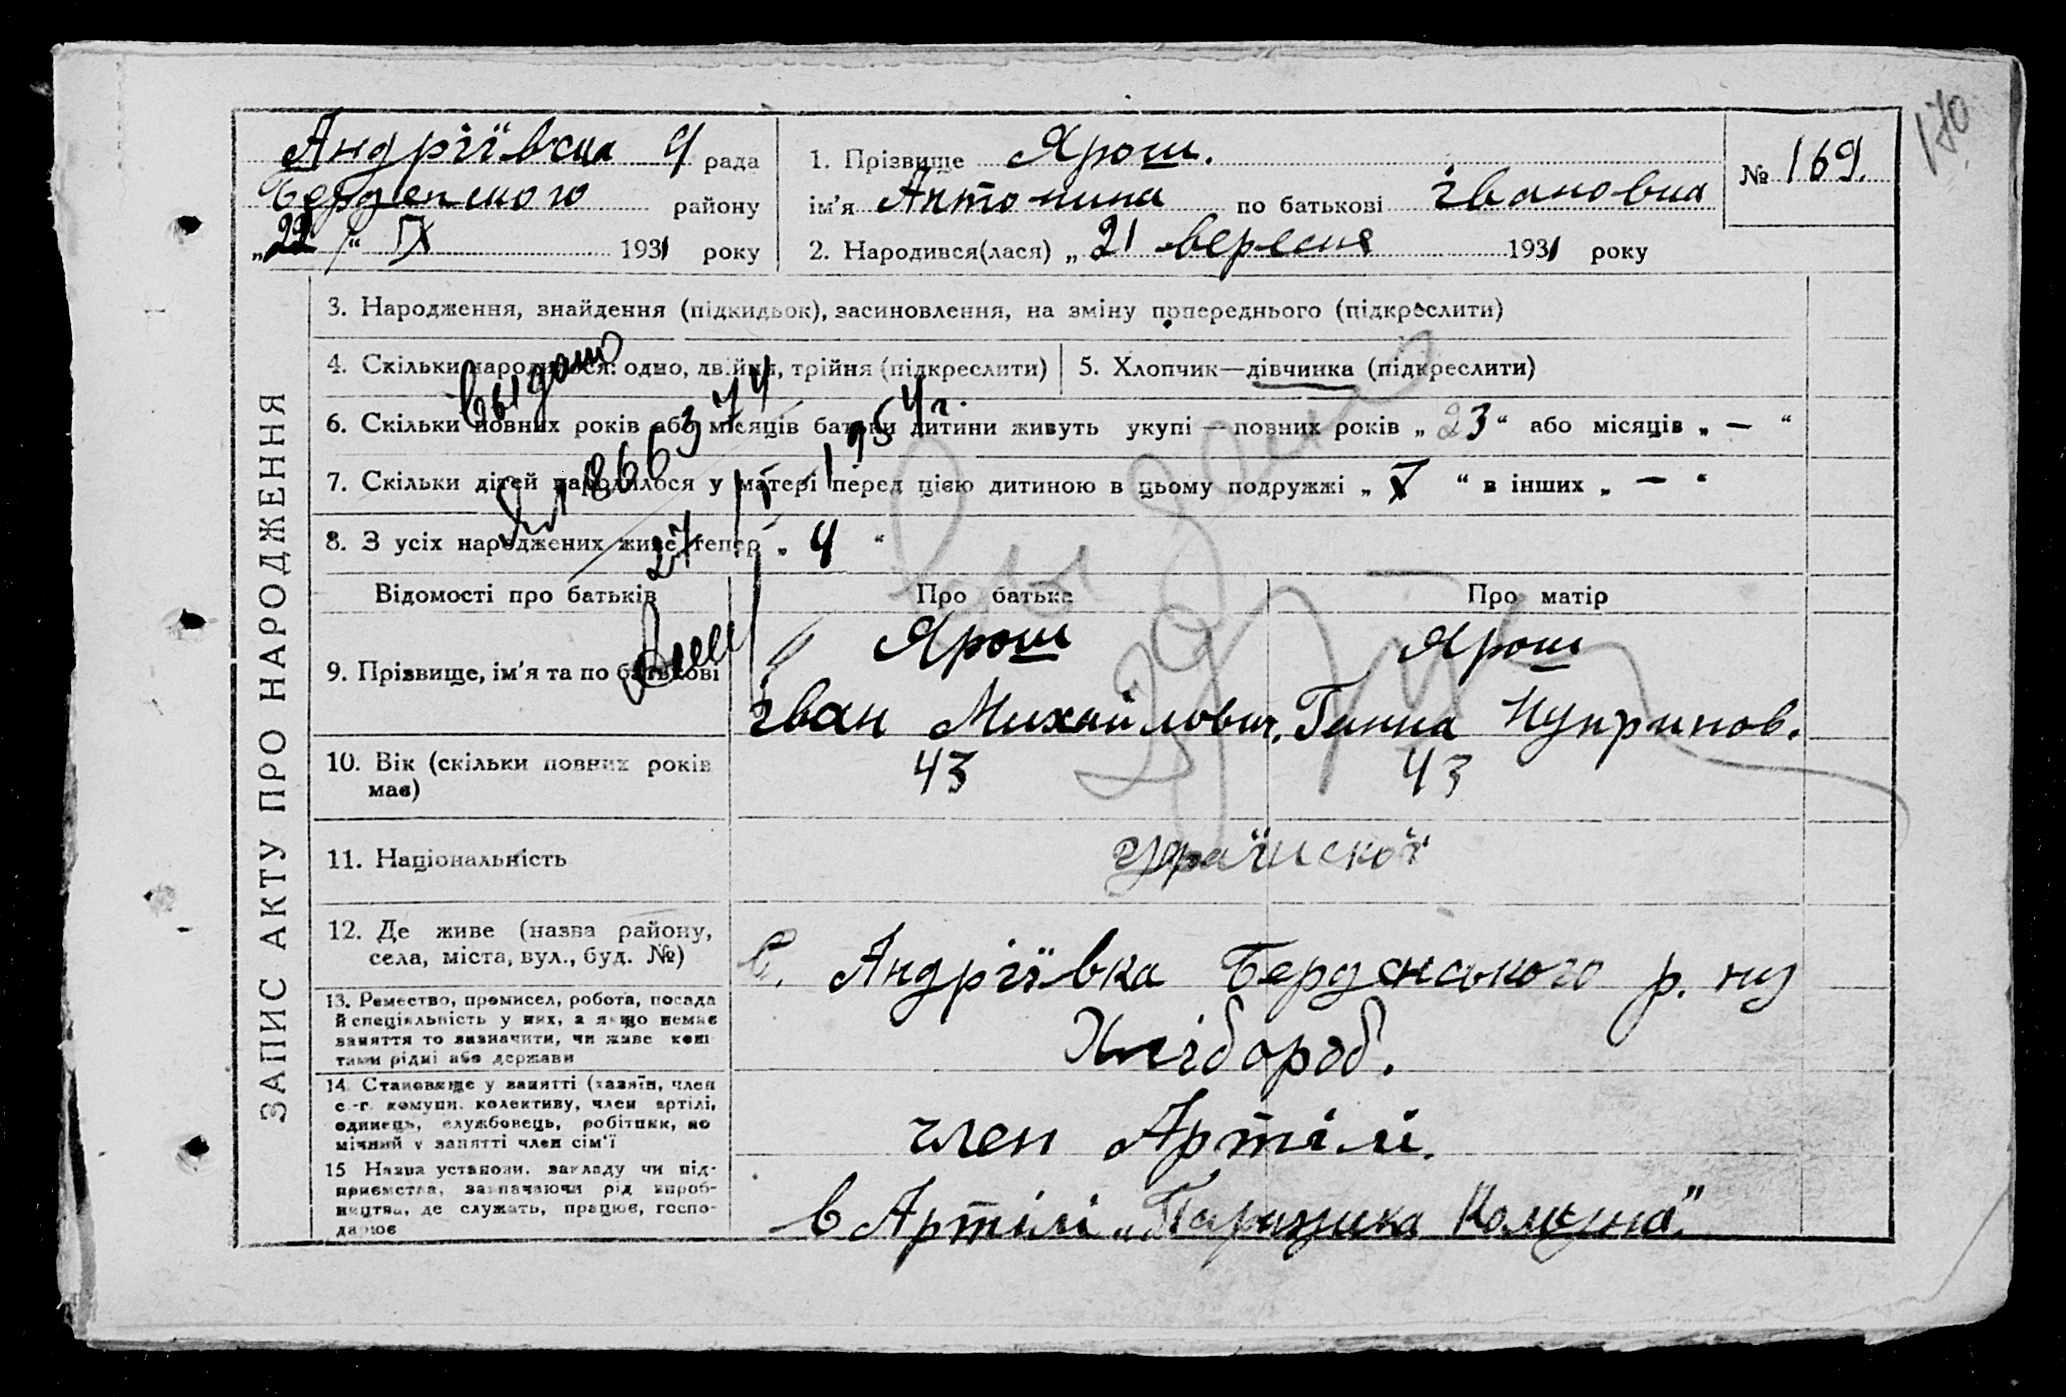 170
Андріївська рада
Берденського району
„22“ IX 1931 року
1. Прізвище Ярош.
ім'я Антонина по батькові Івановна
2. Народився(лася) „21 вересня 1931 року
№ 169.
ЗАПИС АКТУ ПРО НАРОДЖЕННЯ
3. Народження, знайдення (підкидьок), засиновлення, на зміну попереднього (підкреслити)
4. Скільки народилося: одно, двійня, трійня (підкреслити)
5. Хлопчик—дівчинка (підкреслити)
6. Скільки повних років або місяців батьки дитини живуть укупі — повних років „23“ або місяців „—“
7. Скільки дітей народилося у матері перед цією дитиною в цьому подружжі „7“ в інших „—“
8. З усіх народжених живе тепер „4“
Відомості про батьків
Про батька
Про матір
9. Прізвище, ім'я та по батькові
Ярош
Іван Михайлович.
Ярош
Ганна Куприянов.
10. Вік (скільки повних років
має)
43
43
11. Національність
12. Де живе (назва району,
села, міста, вул., буд. №)
с. Андріївка Берденського р. ну
13. Ремество, промисел, робота, посада
й спеціяльність у них, а якщо немає
заняття то зазначити, чи живе кош-
тами рідні або держави
Хлібороб.
14. Становище у занятті (хазяїн, член
с.-г. комуни, колективу, член артілі,
одинець, службовець, робітник, по
мічний у занятті член сім'ї
член Артілі.
15 Назва установи, закладу чи під-
приємства, зазначаючи рід вироб-
ництва, де служать, працює, госпо-
дарює
в Артілі „Паризька Комуна"
выдано
27 1954 г.